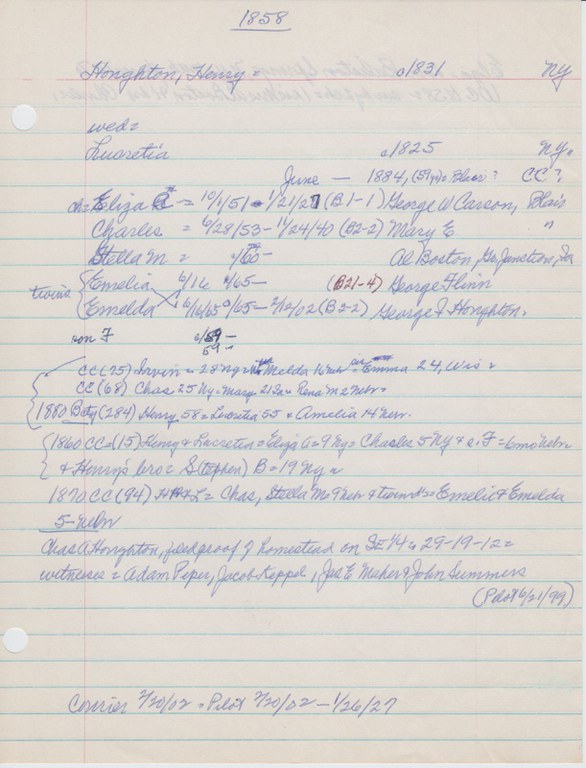 1858
Houghton, Henry = c1831 NY
wed=
Lucretia c1825 NY.
June — 1884, (59 yr)= Blair? CC?
ch= Eliza — 10/1/51 — 1/21/27 (B.1-1) George W Carson, Blair
Charles = 6/28/53 — 11/24/40 (B2-2) Mary E "
Stella M = c/60— Al Boston, Junction, Ia
twins Emelia 6/16 c/65— (B21-4) George Flinn
Emelda 6/16/65 c/65— 2/12/02 (B2-2) George F Houghton.
son F c/59—
59—
CC (25) Irvin = 28 Ny = Melda Emma 24, Wis =
CC (68) Chas 25 Ny = Mary 21 Ia = Rena M 2 Nebr =
1880 (284) Henry, 58 = Lucretia 55 = Amelia 14 Nebr.
1860 CC = (15) Henry & Lucretia = Eliza 9 Ny = Charles 5 NY & c. F = 6mo Nebr
& Henry's bro = S(tephen) B = 19 Ny =
1870 CC (94) = Chas, Stella M = 9 Nebr & twins = Emelie & Emelda
5-Nebr
Chas A Houghton, filed proof of homestead on SE 1/4 = 29-19-12 =
witnesses = Adam Piper, Jacob Keppel, Jas E Maher & John Summers
(Pilot 6/21/99)
Courier 2/20/02 = Pilot 2/20/02 — 1/26/27